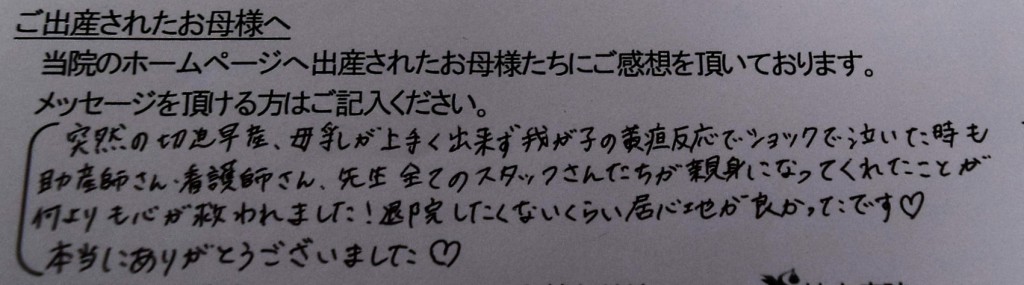 ご出産されたお母様へ
当院のホームページへ出産されたお母様たちにご感想を頂いております。
メッセージを頂ける方はご記入ください。
突然の切迫早産、母乳が上手く出来ず我が子の黄疸反応でショックで泣いた時も
助産師さん・看護師さん、先生 全てのスタッフさんたちが親身になってくれたことが
何よりも心が救われました！退院したくないくらい居心地が良かったです♡
本当にありがとうございました♡